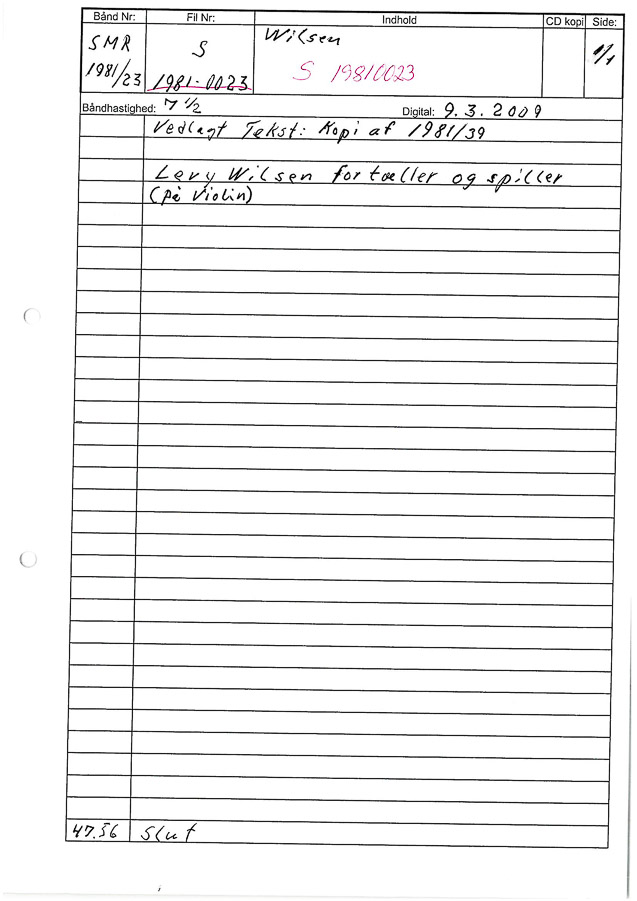 Bånd Nr: Fil Nr: Indhold CD kopi Side:
SMR S Wilsen 1/1
1981/23 1981-0023 S 19810023
Båndhastighed: 7 1/2 Digital: 9.3.2009
Vedlagt Tekst: Kopi af 1981/39
Levy Wilsen fortæller og spiller
(på Violin)
47.56 Slut